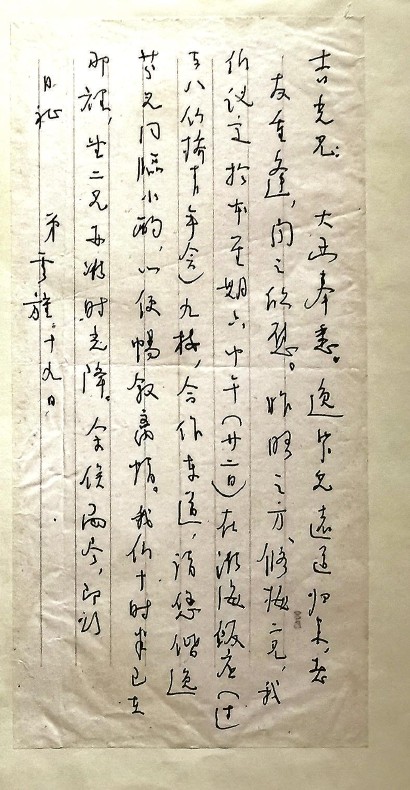 吉光兄: 大函奉悉。逸芬兄远道归来,老
友重逢,闻之欣慰。昨晤之方、修梅二兄,我
们议定於本星期六中午(廿二日)在淮海饭店(过
去八仙桥青年会)九楼,合作东道,请您偕逸
芬兄同临小酌,以便畅叙离情。我们十时半已在
那裡,望二兄亦准时光降。余俟面命,即颂
日祉 弟 十九日